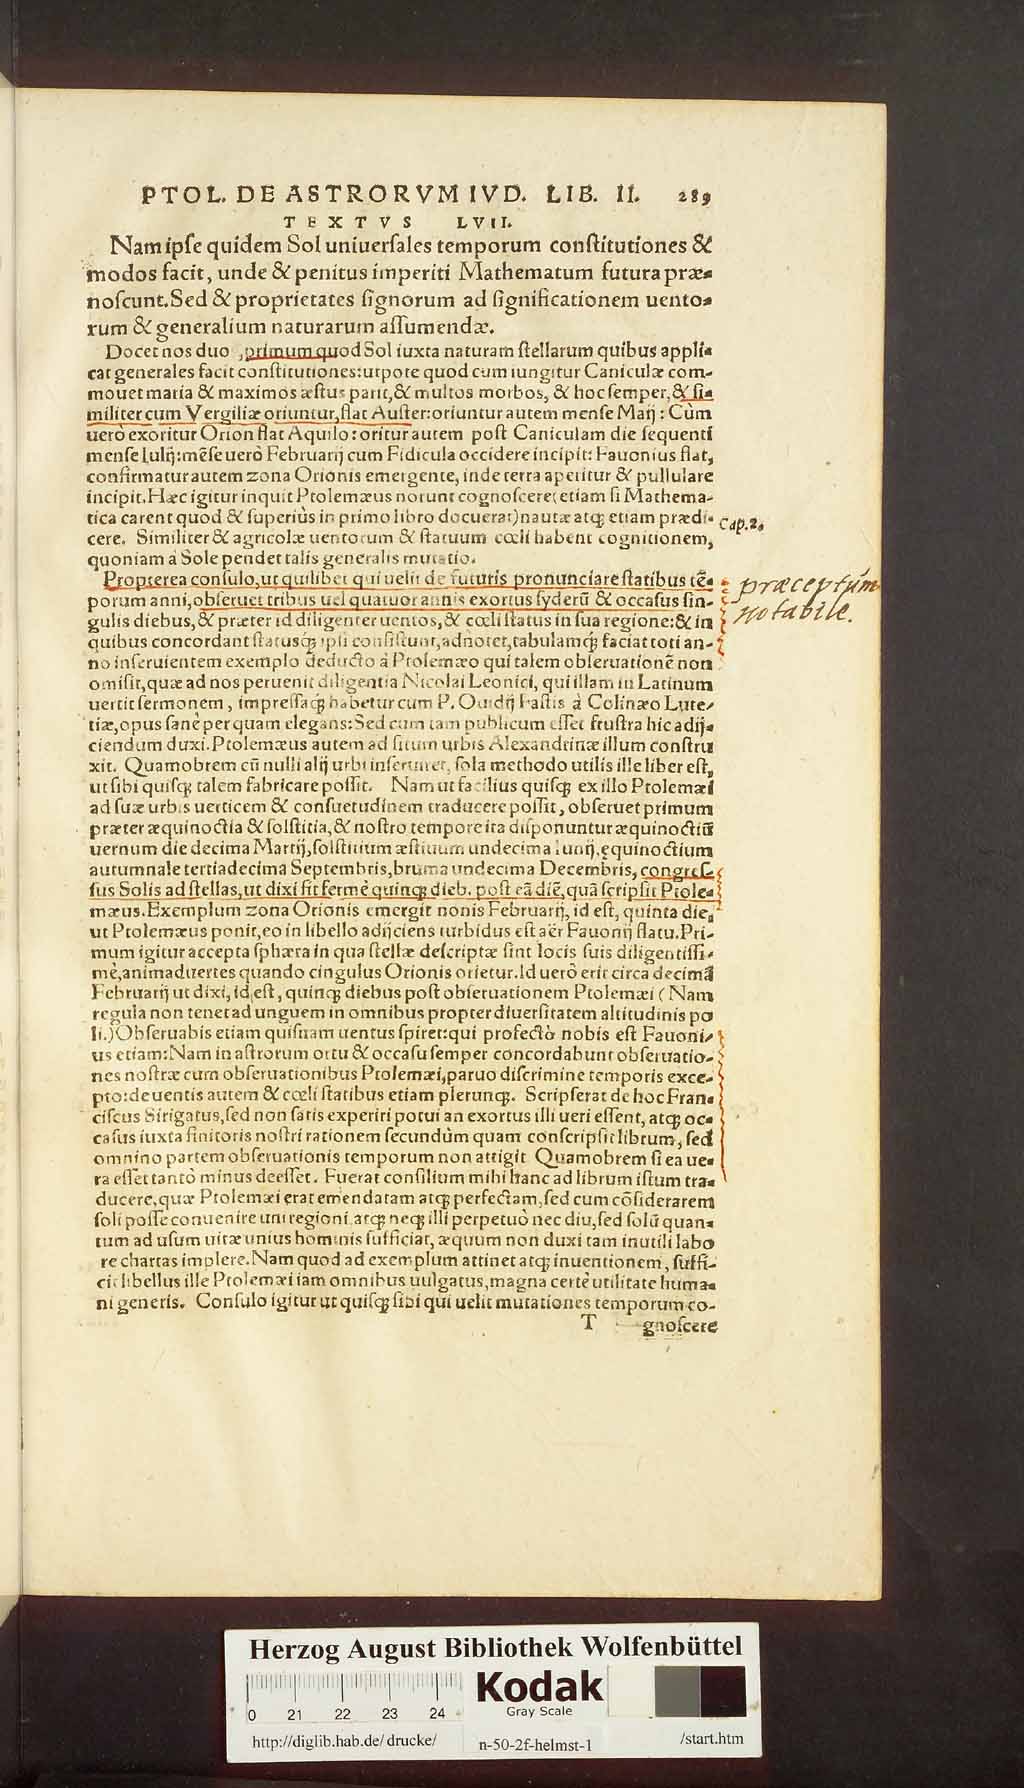 PTOL. DE ASTRORVM IVD. LIB. II. 289
TEXTVS LVII.
Nam ipse quidem Sol uniuersales temporum constitutiones &
modos facit, unde & penitus imperiti Mathematum futura præ-
noscunt. Sed & proprietates signorum ad significationem uento-
rum & generalium naturarum assumendæ.
Docet nos duo, primum quod Sol iuxta naturam stellarum quibus appli-
cat generales facit constitutiones: utpote quod cum iungitur Caniculæ com-
mouet maria & maximos æstus parit, & multos morbos, & hoc semper, & si-
militer cum Vergiliæ oriuntur, flat Auster: oriuntur autem mense Maij: Cùm
uerò exoritur Orion flat Aquilo: oritur autem post Caniculam die sequenti
mense Iulij: mēse uerò Februarij cum Fidicula occidere incipit: Fauonius flat,
confirmatur autem zona Orionis emergente, inde terra aperitur & pullulare
incipit. Hæc igitur inquit Ptolemæus norunt cognoscere (etiam si Mathema-
tica carent quod & superiùs in primo libro docuerat) nautæ atq; etiam prædi-
cere. Similiter & agricolæ uentorum & statuum cœli habent cognitionem,
quoniam à Sole pendet talis generalis mutatio.
Cap. 2.
Propterea consulo, ut quilibet qui uelit de futuris pronunciare statibus tē-
porum anni, obseruet tribus uel quatuor annis exortus syderū & occasus sin-
gulis diebus, & præter id diligenter uentos, & cœli status in sua regione: & in
quibus concordant statusq; ipsi consistunt, adnotet, tabulamq; faciat toti an-
no inseruientem exemplo deducto à Ptolemæo qui talem obseruationē non
omisit, quæ ad nos peruenit diligentia Nicolai Leonici, qui illam in Latinum
uertit sermonem, impressaq; habetur cum P. Ouidij Fastis à Colinæo Lute-
tiæ, opus sanè perquam elegans: Sed cum tam publicum esset frustra hic adij-
ciendum duxi. Ptolemæus autem ad situm urbis Alexandrinæ illum constru
xit. Quamobrem cū nulli alij urbi inseruiret, sola methodo utilis ille liber est,
ut sibi quisq; talem fabricare possit. Nam ut facilius quisq; ex illo Ptolemæi
ad suæ urbis uerticem & consuetudinem traducere possit, obseruet primum
præter æquinoctia & solstitia, & nostro tempore ita disponuntur æquinoctiū
uernum die decima Martij, solstitium æstiuum undecima Iunij, ęquinoctium
autumnale tertiadecima Septembris, bruma undecima Decembris, congres-
sus Solis ad stellas, ut dixi fit fermè quinq; dieb. post eā diē, quā scripsit Ptole-
mæus. Exemplum zona Orionis emergit nonis Februarij, id est, quinta die,
ut Ptolemæus ponit, eo in libello adijciens turbidus est aër Fauonij flatu. Pri-
mum igitur accepta sphæra in qua stellæ descriptæ sint locis suis diligentissi-
mè, animaduertes quando cingulus Orionis orietur. Id uerò erit circa decimā
Februarij ut dixi, id est, quinq; diebus post obseruationem Ptolemæi (Nam
regula non tenet ad unguem in omnibus propter diuersitatem altitudinis po
li.) Obseruabis etiam quisnam uentus spiret: qui profectò nobis est Fauoni-
us etiam: Nam in astrorum ortu & occasu semper concordabunt obseruatio-
nes nostræ cum obseruationibus Ptolemæi, paruo discrimine temporis exce-
pto: de uentis autem & cœli statibus etiam plerunq;. Scripserat de hoc Fran-
ciscus Sirigatus, sed non satis experiri potui an exortus illi ueri essent, atq; oc-
casus iuxta finitoris nostri rationem secundùm quam conscripsit librum, sed
omnino partem obseruationis temporum non attigit Quamobrem si ea ue-
ra esset tantò minus deesset. Fuerat consilium mihi hanc ad librum istum tra-
ducere, quæ Ptolemæi erat emendatam atq; perfectam, sed cum cōsiderarem
soli posse conuenire uni regioni, atq; neq; illi perpetuò nec diu, sed solū quan-
tum ad usum uitæ unius hominis sufficiat, æquum non duxi tam inutili labo
re chartas implere. Nam quod ad exemplum attinet atq; inuentionem, suffi-
cit libellus ille Ptolemæi iam omnibus uulgatus, magna certè utilitate huma-
ni generis. Consulo igitur ut quisq; sibi qui uelit mutationes temporum co-
T gnoscere
præceptum
notabile.
Herzog August Bibliothek Wolfenbüttel
0 21 22 23 24
Kodak
Gray Scale
http://diglib.hab.de/drucke/ n-50-2f-helmst-1 /start.htm